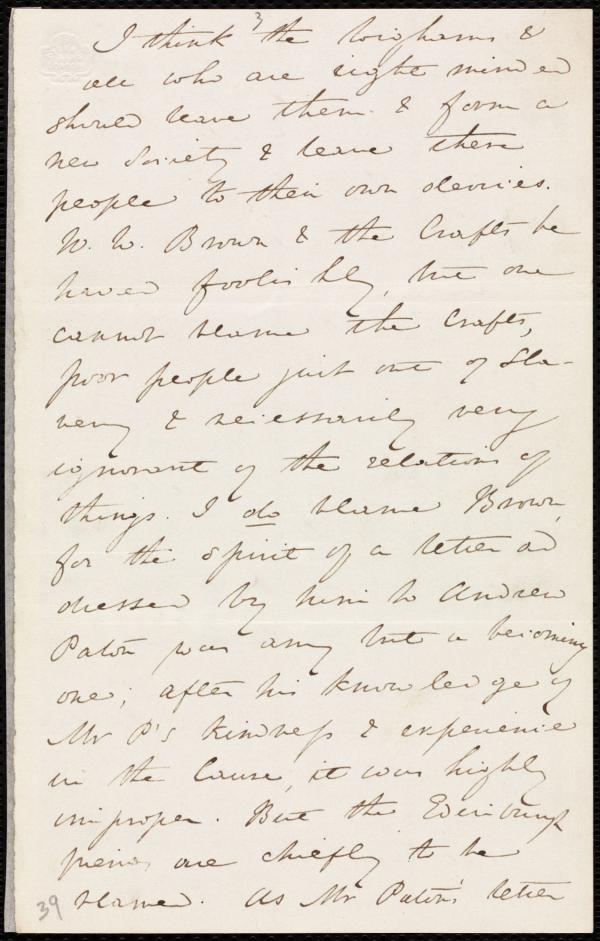 3
I think the Wighams &
all who are right minded
should leave them & form a
new Society & leave these
people to their own devices.
W. W. Brown & the Crafts be
haved foolishly, but one
cannot blame the Crafts,
poor people just out of Sla-
very & necessarily very
ignorant of the relations of
things. I do blame Brown,
for the spirit of a letter ad
dressed by him to Andrew
Paton was any but a becoming
one; after his knowledge of
Mr P's kindness & experience
in the Cause, it was highly
improper. But the Edinburgh
friends are chiefly to be
blamed. As Mr Paton's letter
39